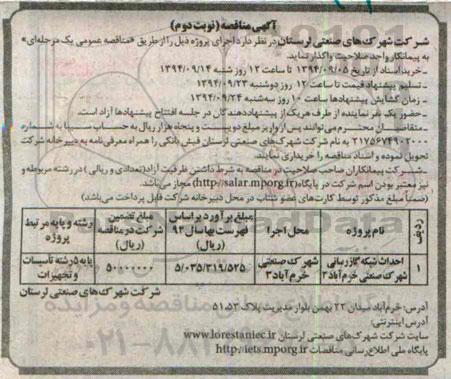 آگهی مناقصه (نوبت دوم)
شرکت شهرک های صنعتی لرستان در نظر دارد اجرای پروژه ذیل را از طریق «مناقصه عمومی یک مرحله‌ای»
به پیمانکار واجد صلاحیت واگذار نماید.
ـ خرید اسناد از تاریخ ۱۳۹۴/۰۹/۰۵ تا ساعت ۱۲ روز شنبه ۱۳۹۴/۰۹/۱۴
ـ تسلیم پیشنهاد قیمت تا ساعت ۱۲ روز دوشنبه ۱۳۹۴/۰۹/۲۳
ـ زمان گشایش پیشنهادها ساعت ۱۰ روز سه‌شنبه ۱۳۹۴/۰۹/۲۴
ـ حضور یک نفر نماینده از طرف هر یک از پیشنهاددهندگان در جلسه افتتاح پیشنهادها آزاد است.
ـ متقاضیان محترم می‌توانند پس از واریز مبلغ دویست و پنجاه هزار ریال به حساب سیبا به شماره
۲۱۷۵۶۷۴۹۰۲۰۰۰ به نام شرکت شهرک‌های صنعتی لرستان فیش بانکی را همراه معرفی نامه به دبیرخانه شرکت
تحویل نموده و اسناد مناقصه را خریداری نمایند.
ـ شرکت پیمانکاران صاحب صلاحیت در مناقصه به شرط داشتن ظرفیت آزاد (تعدادی و ریالی) در رشته مربوطه و
نیز معتبر بودن اسم شرکت در پایگاه (http://salar.mporg.ir) مجاز می‌باشد.
(ضمناً مبلغ مذکور توسط کارت‌های عضو شتاب در محل دبیرخانه شرکت قابل پرداخت می‌باشد)
ردیف | نام پروژه | محل اجرا | مبلغ برآورد بر اساس فهرست بها سال ۹۴ (ریال) | مبلغ تضمین شرکت در مناقصه (ریال) | رشته و پایه مرتبط پروژه
۱ | احداث شبکه گازرسانی شهرک صنعتی خرم‌آباد ۳ | شهرک صنعتی خرم‌آباد ۳ | ۵/۰۳۵/۳۱۹/۵۲۵ | ۵۰۰۰۰۰۰۰ | پایه ۵ رشته تأسیسات و تجهیزات
شرکت شهرک‌های صنعتی لرستان
آدرس: خرم‌آباد میدان ۲۲ بهمن بلوار مدیریت پلاک ۵۱،۵۳
آدرس اینترنتی:
سایت شرکت شهرک‌های صنعتی لرستان www.lorestaniec.ir
پایگاه ملی اطلاع‌رسانی مناقصات http://iets.mporg.ir